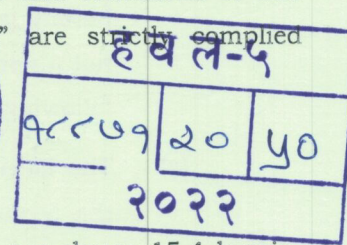 ” are strictly complied
हवल-५
१८८७१ २० ५०
२०२२